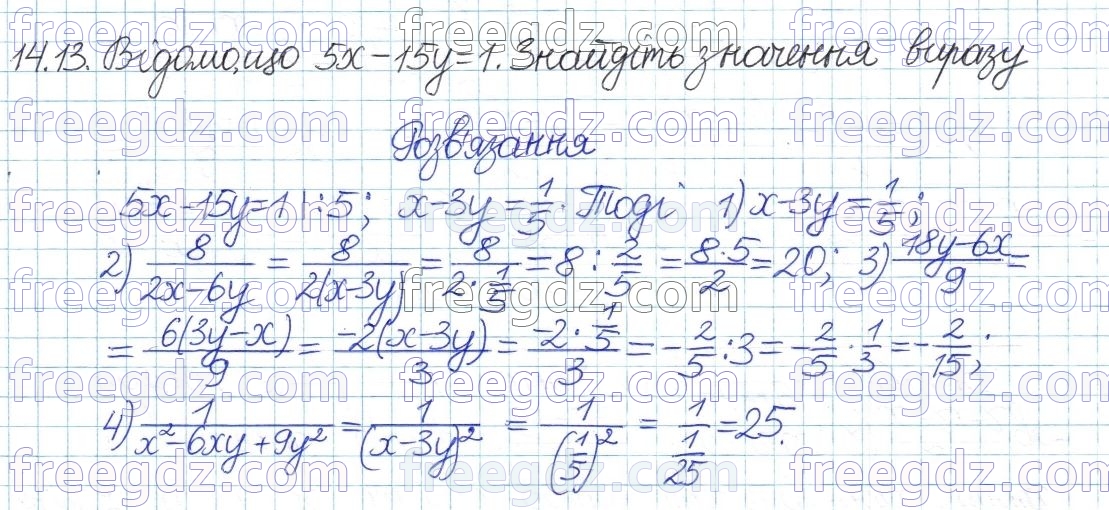 14.13. Відомо, що 5x − 15y = 1. Знайдіть значення виразу
Розв'язання
5x − 15y = 1 | : 5; x − 3y = 1/5. Тоді 1) x − 3y = 1/5;
2) 8/(2x − 6y) = 8/(2(x − 3y)) = 8/(2 · 1/5) = 8 : 2/5 = (8 · 5)/2 = 20; 3) (18y − 6x)/9 =
= 6(3y − x)/9 = −2(x − 3y)/3 = (−2 · 1/5)/3 = −2/5 : 3 = −2/5 · 1/3 = −2/15;
4) 1/(x² − 6xy + 9y²) = 1/(x − 3y)² = 1/(1/5)² = 1/(1/25) = 25.
freegdz.com